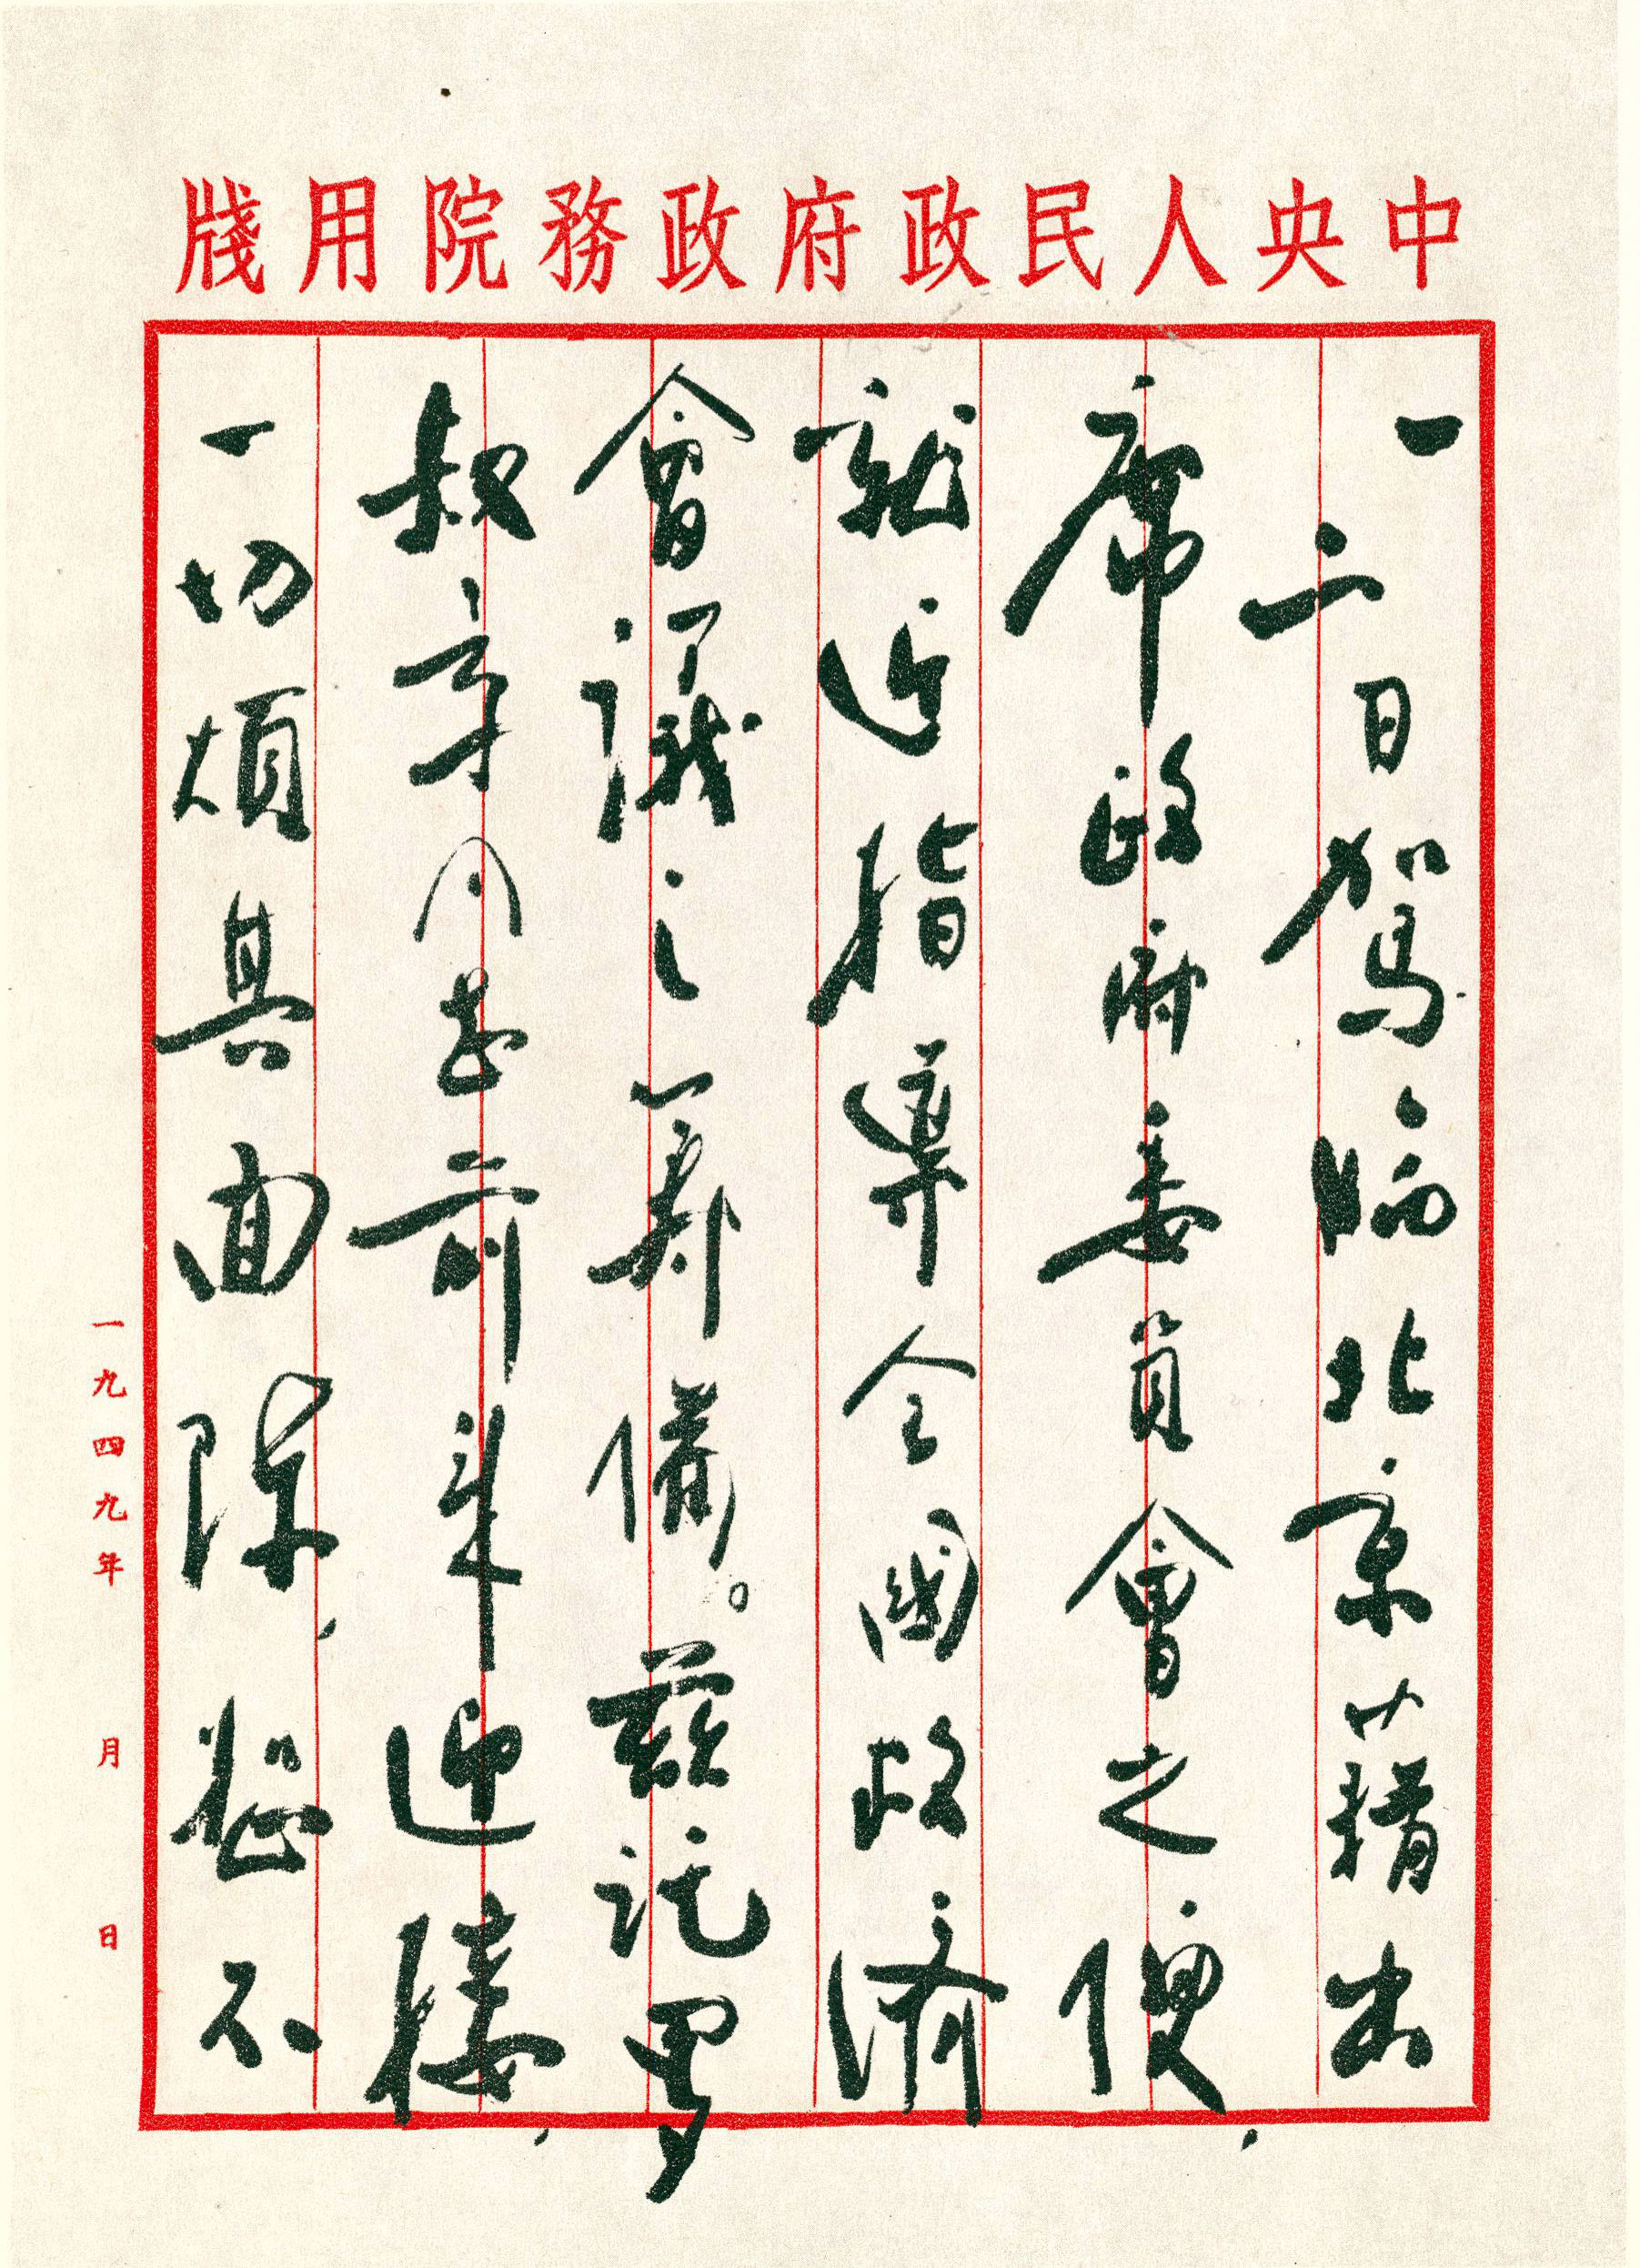 中央人民政府政務院用牋
一二日駕臨北京藉出
席政府委員會之便，
就近指導全國政治經濟
會議之籌備。茲託羅
叔章同志前來迎接，
一切煩其面陳，想不
一九四九年　月　日